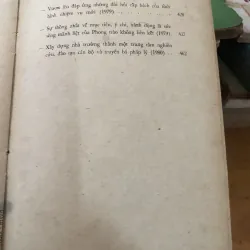 — Vươn lên đáp ứng những đòi hỏi cấp bách của tình
hình, nhiệm vụ mới (1979) . . .
— Sự thống nhất về mục tiêu, ý chí, hành động là sức
sống mãnh liệt của Phong trào không liên kết (1979). 452
— Xây dựng nhà trường thành một trung tâm nghiên
cứu, đào tạo cán bộ và truyền bá pháp lý (1980) . . 462